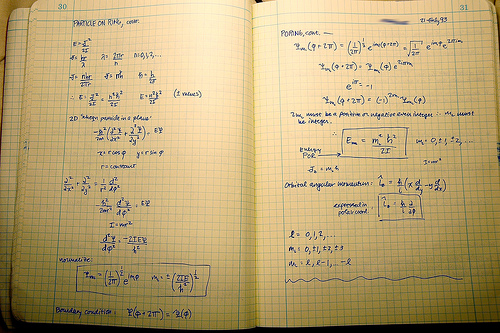 30
PARTICLE ON RING, cont.
E = J²/2I
J = hr/λ   λ = 2πr/n   n = 0,1,2,...
J = nhr/2πr   J = nħ   ħ = h/2π
∴ E = J²/2I = n²ħ²/2I   E = n²ħ²/2I   (I values)
2D "when particle in a plane"
-ħ²/2m (∂²Ψ/∂x² + ∂²Ψ/∂y²) = EΨ
x = r cos φ   y = r sin φ
r = constant
∂²/∂x² + ∂²/∂y² = 1/r² d²/dφ²
ħ²/2mr² d²Ψ/dφ² = EΨ
I = mr²
d²Ψ/dφ² = -2IEΨ/ħ²
normalize:
Ψm = (1/2π)^½ e^imφ   mₗ = ± (2IE/ħ²)^½
Boundary condition: Ψ(φ+2π) = Ψ(φ)
31
21-Feb-93
PORING, cont. —
Ψm (φ+2π) = (1/2π)^½ e^im(φ+2π) = √1/2π e^imφ e^2πim
Ψm (φ+2π) = Ψm (φ) e^2πim
e^iπ = -1
Ψm (φ+2π) = (-1)^2m Ψm (φ)
2m must be a positive or negative even integer ∴ mₗ must
be integer.
∴ Em = mₗ²ħ²/2I   mₗ = 0, ±1, ±2, ...
Energy
POR
I = mr²
Jz = mₗħ
Orbital angular momentum: l̂z = ħ/i (x d/dy - y d/dx)
expressed in
polar coord.
l̂z = ħ/i ∂/∂φ
l = 0, 1, 2, ...
mₗ = 0, ±1, ±2, ±3
mₗ = l, l-1, ... -l